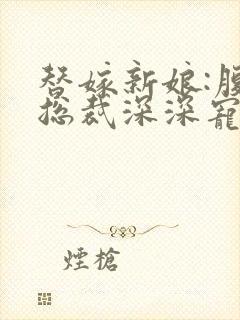 替嫁新娘:腹
总裁深深宠
煙槍